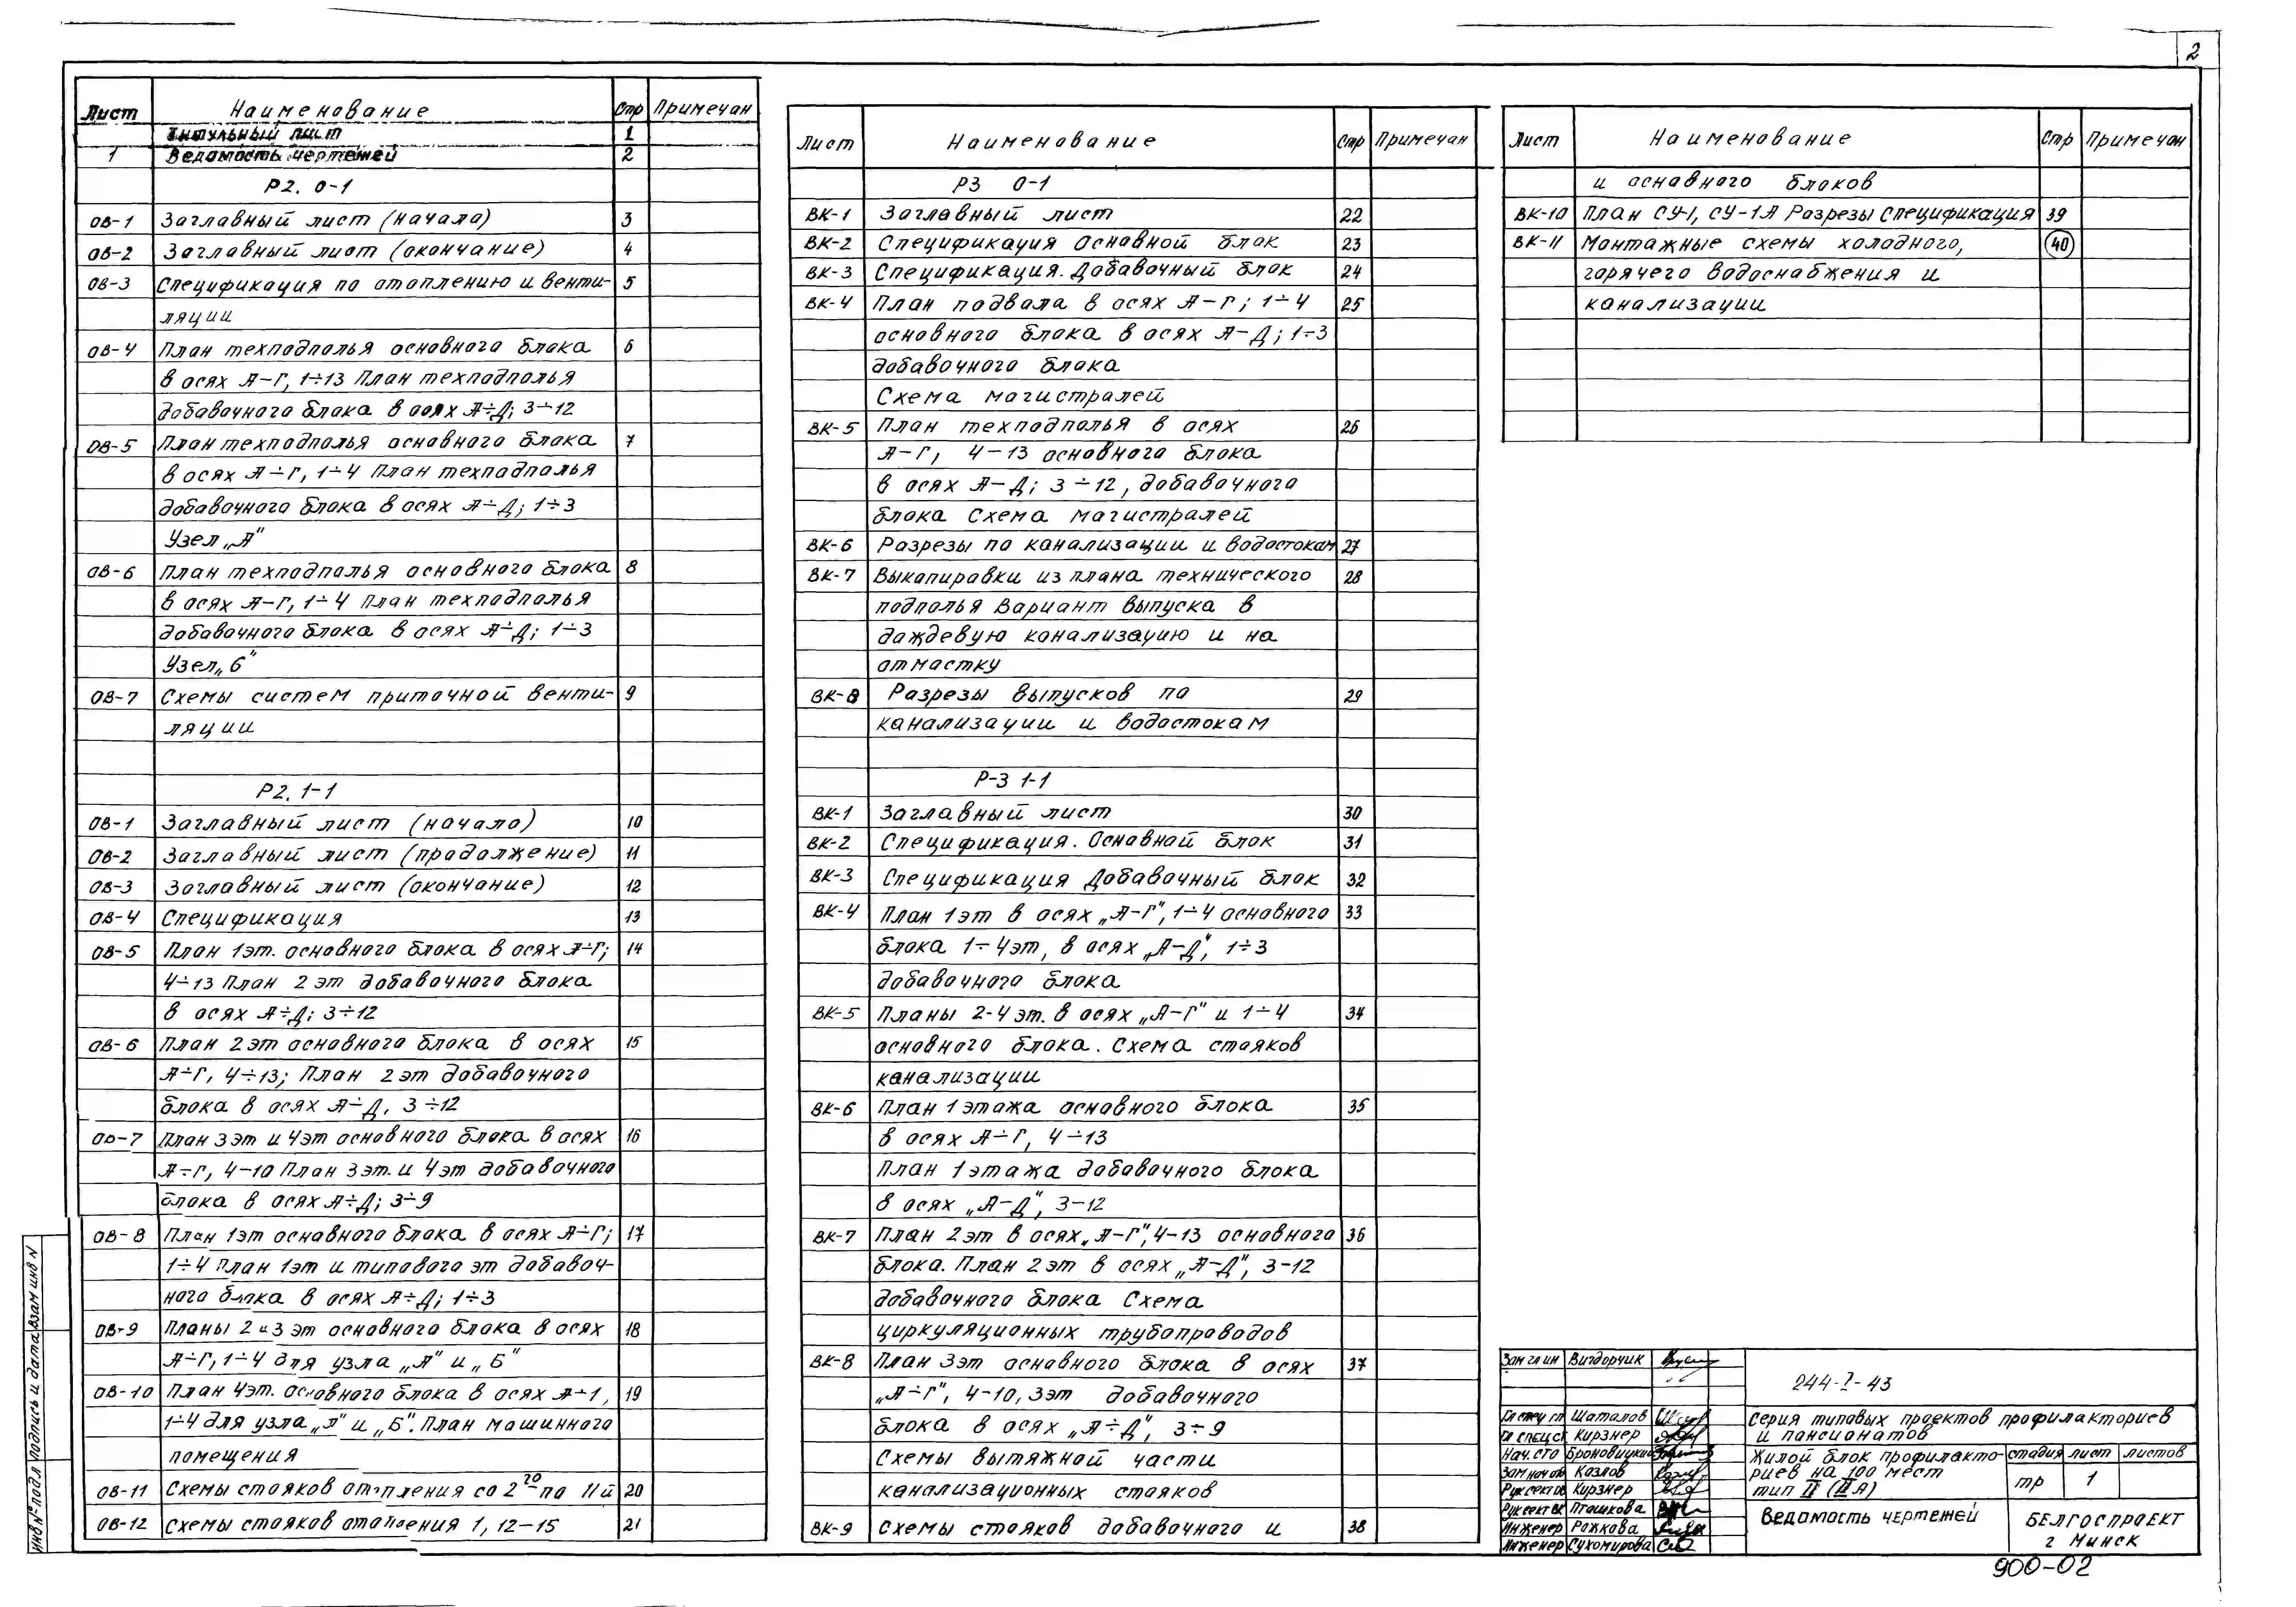 2
Лист Наименование Стр Примечан
Титульный лист 1
1 Ведомость чертежей 2
Р2. 0-1
ОВ-1 Заглавный лист (начало) 3
ОВ-2 Заглавный лист (окончание) 4
ОВ-3 Спецификация по отоплению и венти- 5
ляции
ОВ-4 План техподполья основного блока 6
в осях А-Г, 1÷13 План техподполья
добавочного блока в осях А÷Д; 3÷12
ОВ-5 План техподполья основного блока 7
в осях А÷Г, 1÷4 План техподполья
добавочного блока в осях А÷Д; 1÷3
Узел „А"
ОВ-6 План техподполья основного блока 8
в осях А-Г, 1÷4 План техподполья
добавочного блока в осях А÷Д; 1÷3
Узел „б"
ОВ-7 Схемы систем приточной венти- 9
ляции
Р2. 1-1
ОВ-1 Заглавный лист (начало) 10
ОВ-2 Заглавный лист (продолжение) 11
ОВ-3 Заглавный лист (окончание) 12
ОВ-4 Спецификация 13
ОВ-5 План 1эт. основного блока в осях А÷Г; 14
4÷13 План 2 эт добавочного блока
в осях А÷Д; 3÷12
ОВ-6 План 2эт основного блока в осях 15
А÷Г, 4÷13; План 2эт добавочного
блока в осях А÷Д, 3÷12
ОВ-7 План 3эт и 4эт основного блока в осях 16
А÷Г, 4-10 План 3эт. и 4эт добавочного
блока в осях А÷Д; 3÷9
ОВ-8 План 1эт основного блока в осях А÷Г; 17
1÷4 План 1эт и типового эт добавоч-
ного блока в осях А÷Д; 1÷3
ОВ-9 Планы 2 и 3 эт основного блока в осях 18
А÷Г, 1-4 для узла „А" и „Б"
ОВ-10 План 4эт. основного блока в осях А÷1, 19
1÷4 для узла „А" и „Б". План машинного
помещения
ОВ-11 Схемы стояков отопления со 2го по 11й 20
ОВ-12 Схемы стояков отопления 1, 12-15 21
Лист Наименование Стр Примечан
Р3 0-1
ВК-1 Заглавный лист 22
ВК-2 Спецификация Основной блок 23
ВК-3 Спецификация. Добавочный блок 24
ВК-4 План подвала в осях А-Г; 1÷4 25
основного блока в осях А-Д; 1÷3
добавочного блока
Схема магистралей
ВК-5 План техподполья в осях 26
А-Г, 4-13 основного блока
в осях А-Д; 3÷12, добавочного
блока Схема магистралей
ВК-6 Разрезы по канализации и водостокам 27
ВК-7 Выкапировки из плана технического 28
подполья Вариант выпуска в
дождевую канализацию и на
отмостку
ВК-8 Разрезы выпусков по 29
канализации и водостокам
Р-3 1-1
ВК-1 Заглавный лист 30
ВК-2 Спецификация. Основной блок 31
ВК-3 Спецификация Добавочный блок 32
ВК-4 План 1эт в осях „А-Г", 1÷4 основного 33
блока 1÷4эт, в осях „А-Д", 1÷3
добавочного блока
ВК-5 Планы 2-4 эт. в осях „А-Г" и 1÷4 34
основного блока. Схема стояков
канализации
ВК-6 План 1 этажа основного блока 35
в осях А÷Г, 4÷13
План 1 этажа добавочного блока
в осях „А-Д", 3-12
ВК-7 План 2эт в осях „А-Г", 4-13 основного 36
блока. План 2эт в осях „А-Д", 3-12
добавочного блока Схема
циркуляционных трубопроводов
ВК-8 План 3эт основного блока в осях 37
„А÷Г", 4-10, 3эт добавочного
блока в осях „А÷Д", 3÷9
Схемы вытяжной части
канализационных стояков
ВК-9 Схемы стояков добавочного и 38
Лист Наименование Стр Примечан
и основного блоков
ВК-10 План СУ-1, СУ-1А Разрезы Спецификация 39
ВК-11 Монтажные схемы холодного, 40
горячего водоснабжения и
канализации
Зам гл ин Вигдорчик
244-I-43
Гл спец гп Шаталов
Гл спец с Кирзнер
Нач. сто Броновицкий
Зам нач ов Козлов
Рук сект ов Кирзнер
Рук сект вк Пташкова
Инженер Рожкова
Инженер Сухомирова
Серия типовых проектов профилакториев
и пансионатов
Жилой блок профилакто-
риев на 100 мест
тип II (IIЯ)
стадия лист листов
тр 1
Ведомость чертежей
БЕЛГОСПРОЕКТ
г Минск
900-02
Инв №подл Подпись и дата Взам инв N